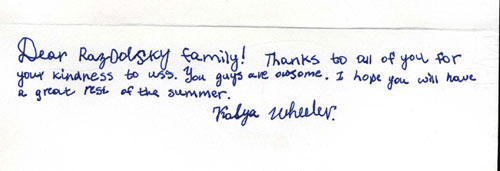 Dear Razdolsky family! Thanks to all of you for
your kindness to uss. You guys are owsome. I hope you will have
a great rest of the summer.
Katya Wheeler.